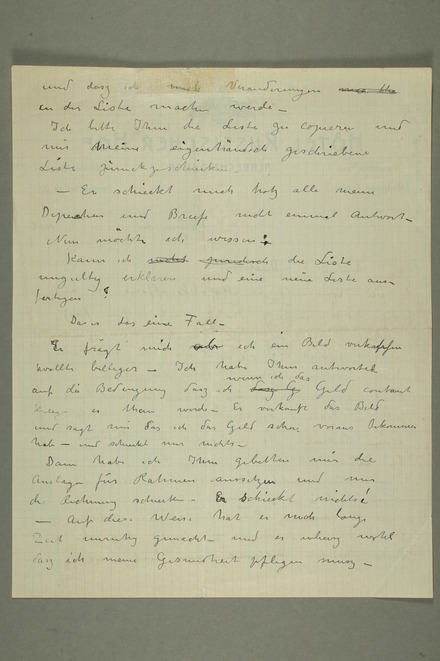 und dasz ich noch Veränderungen
an der Liste machen werde –
Ich bitte Ihm die Liste zu copieren und
mir meine eigenhändich geschriebene
Liste zurückgeschicken
– Er schieckt mich trotz alle meine
Depechen und Briefe nicht einmal Antwort –
Nun möchte ich wissen:
Kann ich nicht juridisch die Liste
ungultig erklären und eine neue Liste aus-
fertigen?
Das is das eine Fall –
Er frägt mich ob ich ein Bild verkaufen
wollte billeger – Ich habe Ihm antwortet
wenn ich das
auf die Bedingung dasz ich Geld contant
es thun würde – Er verkauft das Bild
und sagt mir das ich das Geld schon voraus bekommen
hab – und schiekt mir nichts –
Dann habe ich Ihm gebetten mir die
Auslagen für Rahmen aussetzen und mir
die Rechnung schicken – Er schieckt nichts!
– Auf diese Weise hat er mich lange
Zeit unruhig gemacht und er wohl
dasz ich meine Gesundheit pflegen musz –